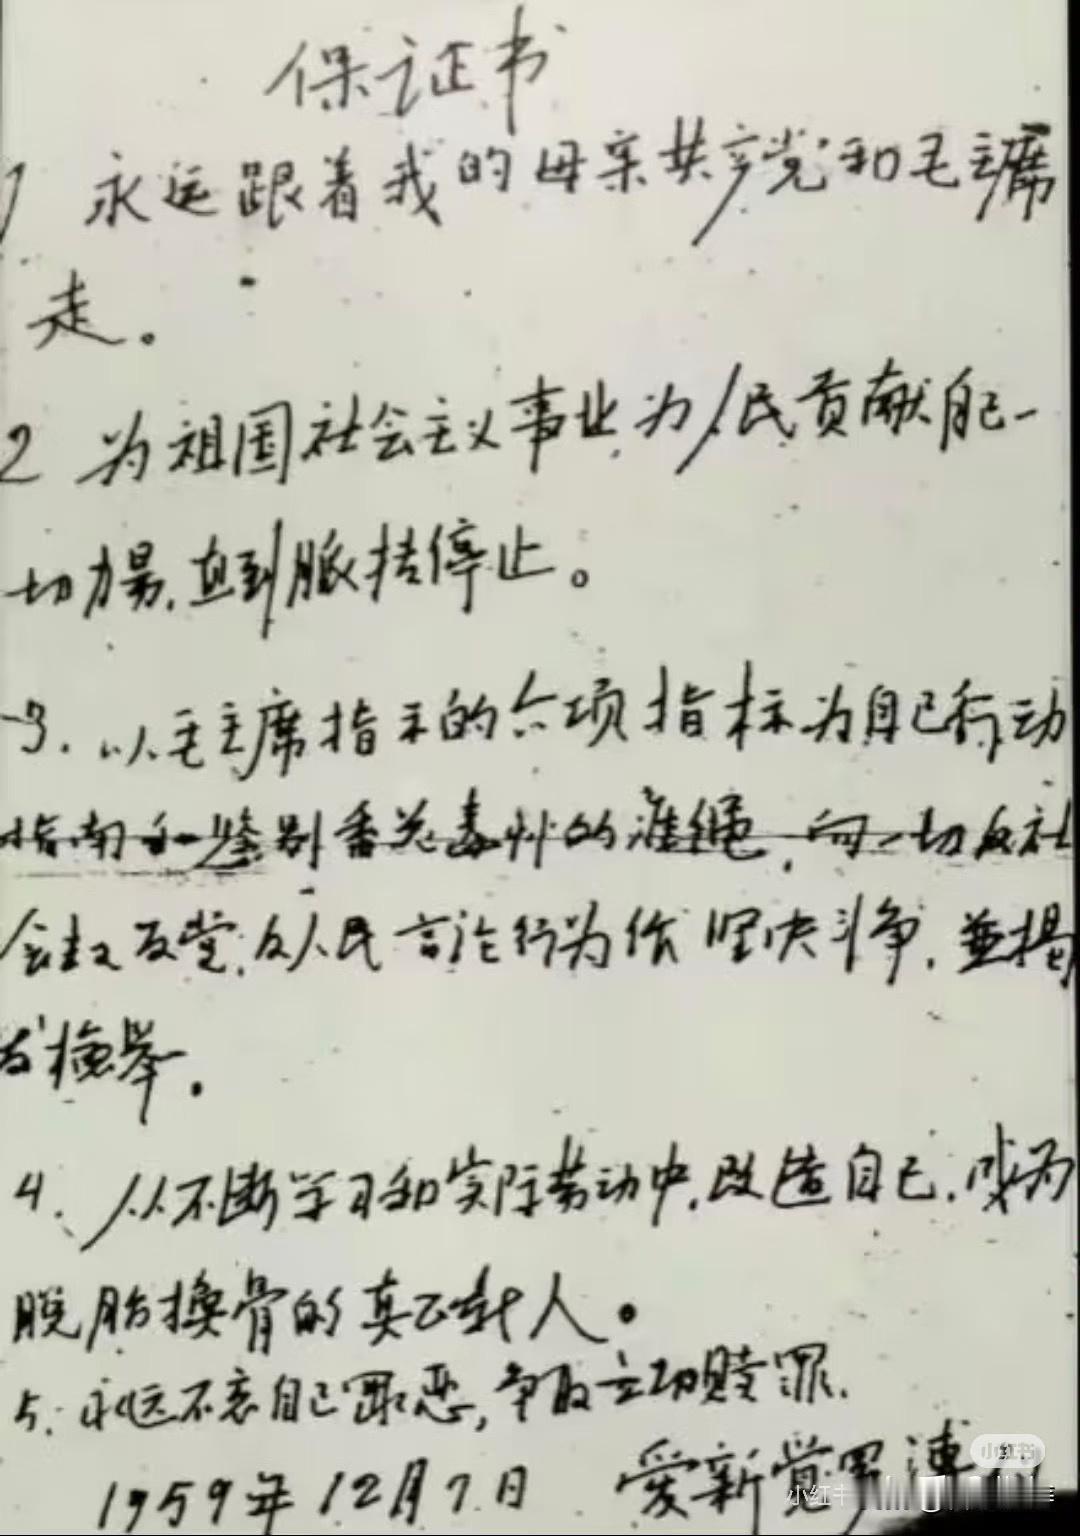 保证书
1 永远跟着我的母亲共产党和毛主席
走。
2 为祖国社会主义事业,为人民贡献自己一
切力量,直到脉搏停止。
3. 以毛主席指示的六项指标为自己行动
指南和鉴别香花毒草的准绳,向一切反社
会主义反党,反人民言论行为作坚决斗争,並揭
发检举。
4. 从不断学习和实际劳动中,改造自己,成为
脱胎换骨的真正新人。
5. 永远不忘自己罪恶,争取立功赎罪.
1959年12月7日 爱新觉罗溥
小红书
小红书